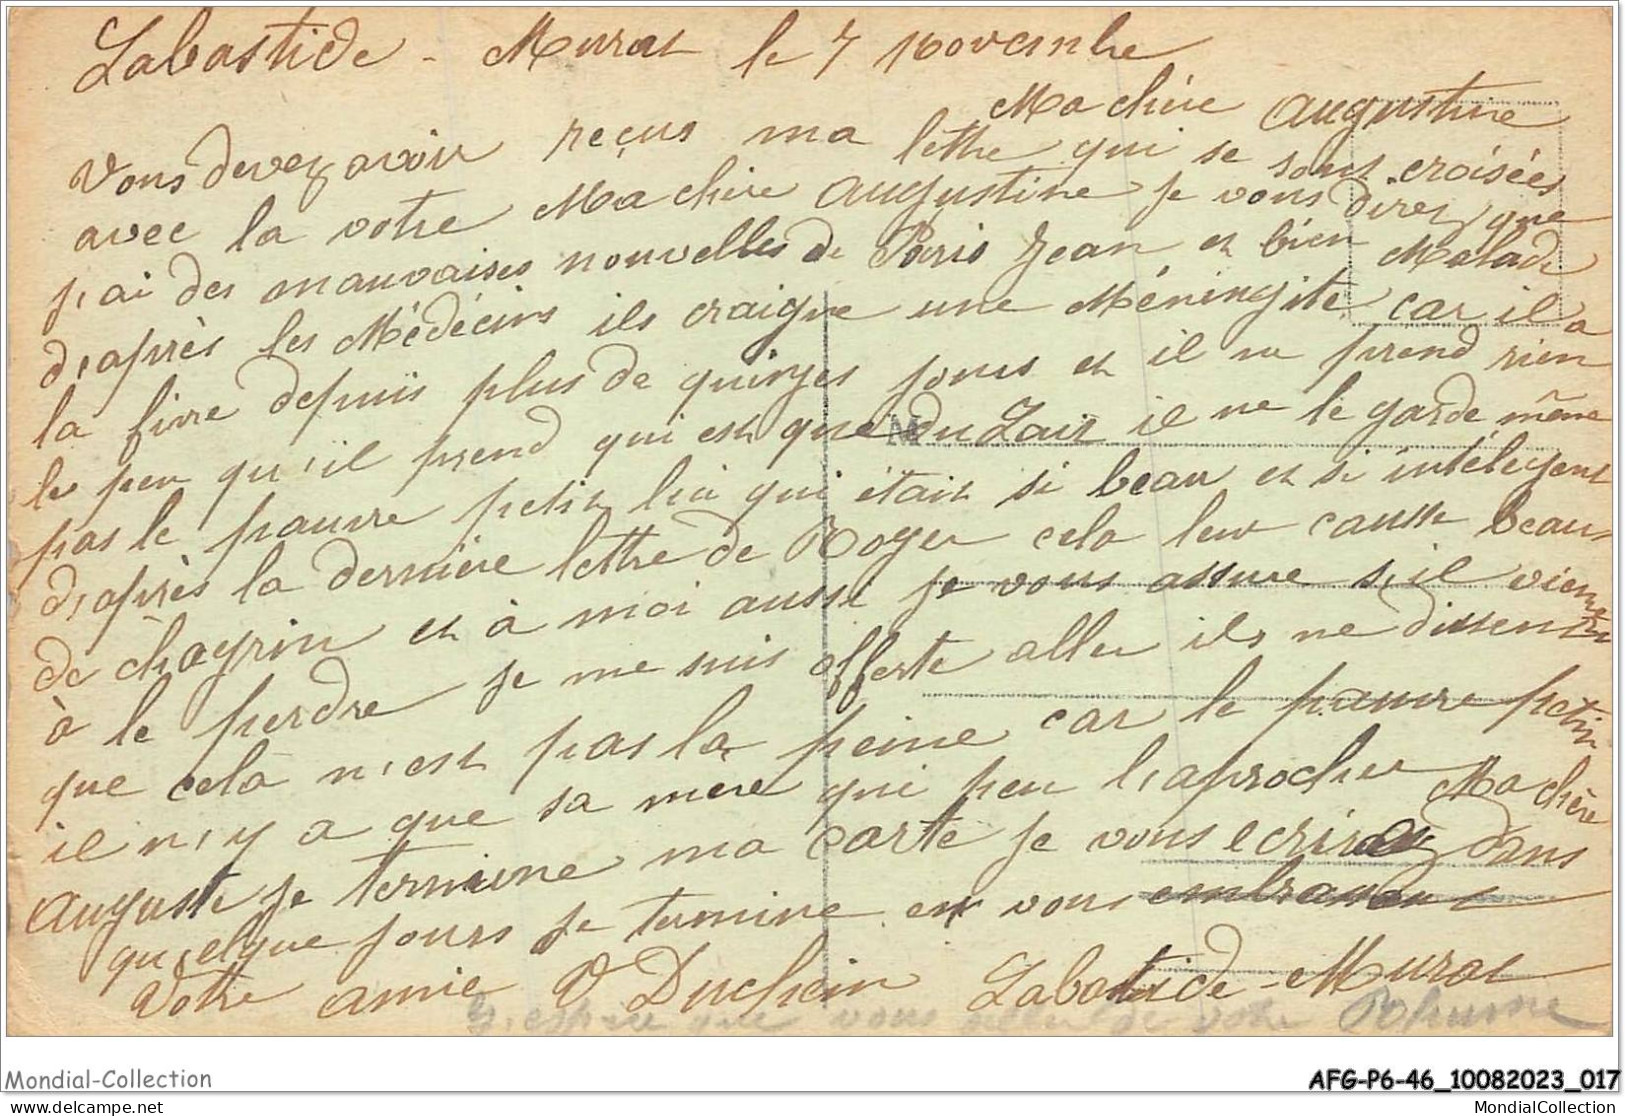 Labastide - Murat le 7 novembre
Ma chère Augustine
Vous devez avoir reçus ma lettre qui se sont croisées
avec la votre Ma chère Augustine je vous direz que
j'ai des mauvaises nouvelles de Paris Jean et bien Malade
d'après les Médécins ils craigne une Méningite car il a
la fivre depuis plus de quinzes jours et il ne prend rien
le peu qu'il prend qui est que du Lait il ne le garde même
pas le pauvre petit lui qui était si beau et si intélegent
d'après la dernière lettre de Roger cela leur cause beau-
de chagrin et à moi aussi je vous assure s'il vienne
à le perdre je me suis offerte aller ils ne dissent
que celà n'est pas la peine car le pauvre petit
il n'y a que sa mere qui peu l'aprocher Ma chère
Auguste je termine ma carte je vous ecrirez dans
quelque jours je termine en vous embrassant
Votre amie V Duchein Labastide-Murat
J'espère que vous de votre Rhume
Mondial-Collection
AFG-P6-46_10082023_017
delcampe.net
MondialCollection